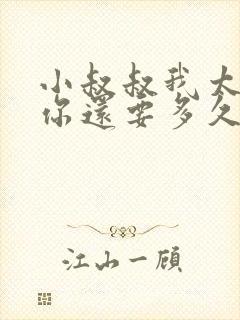 小叔叔我大
你還要多久
江山一顾